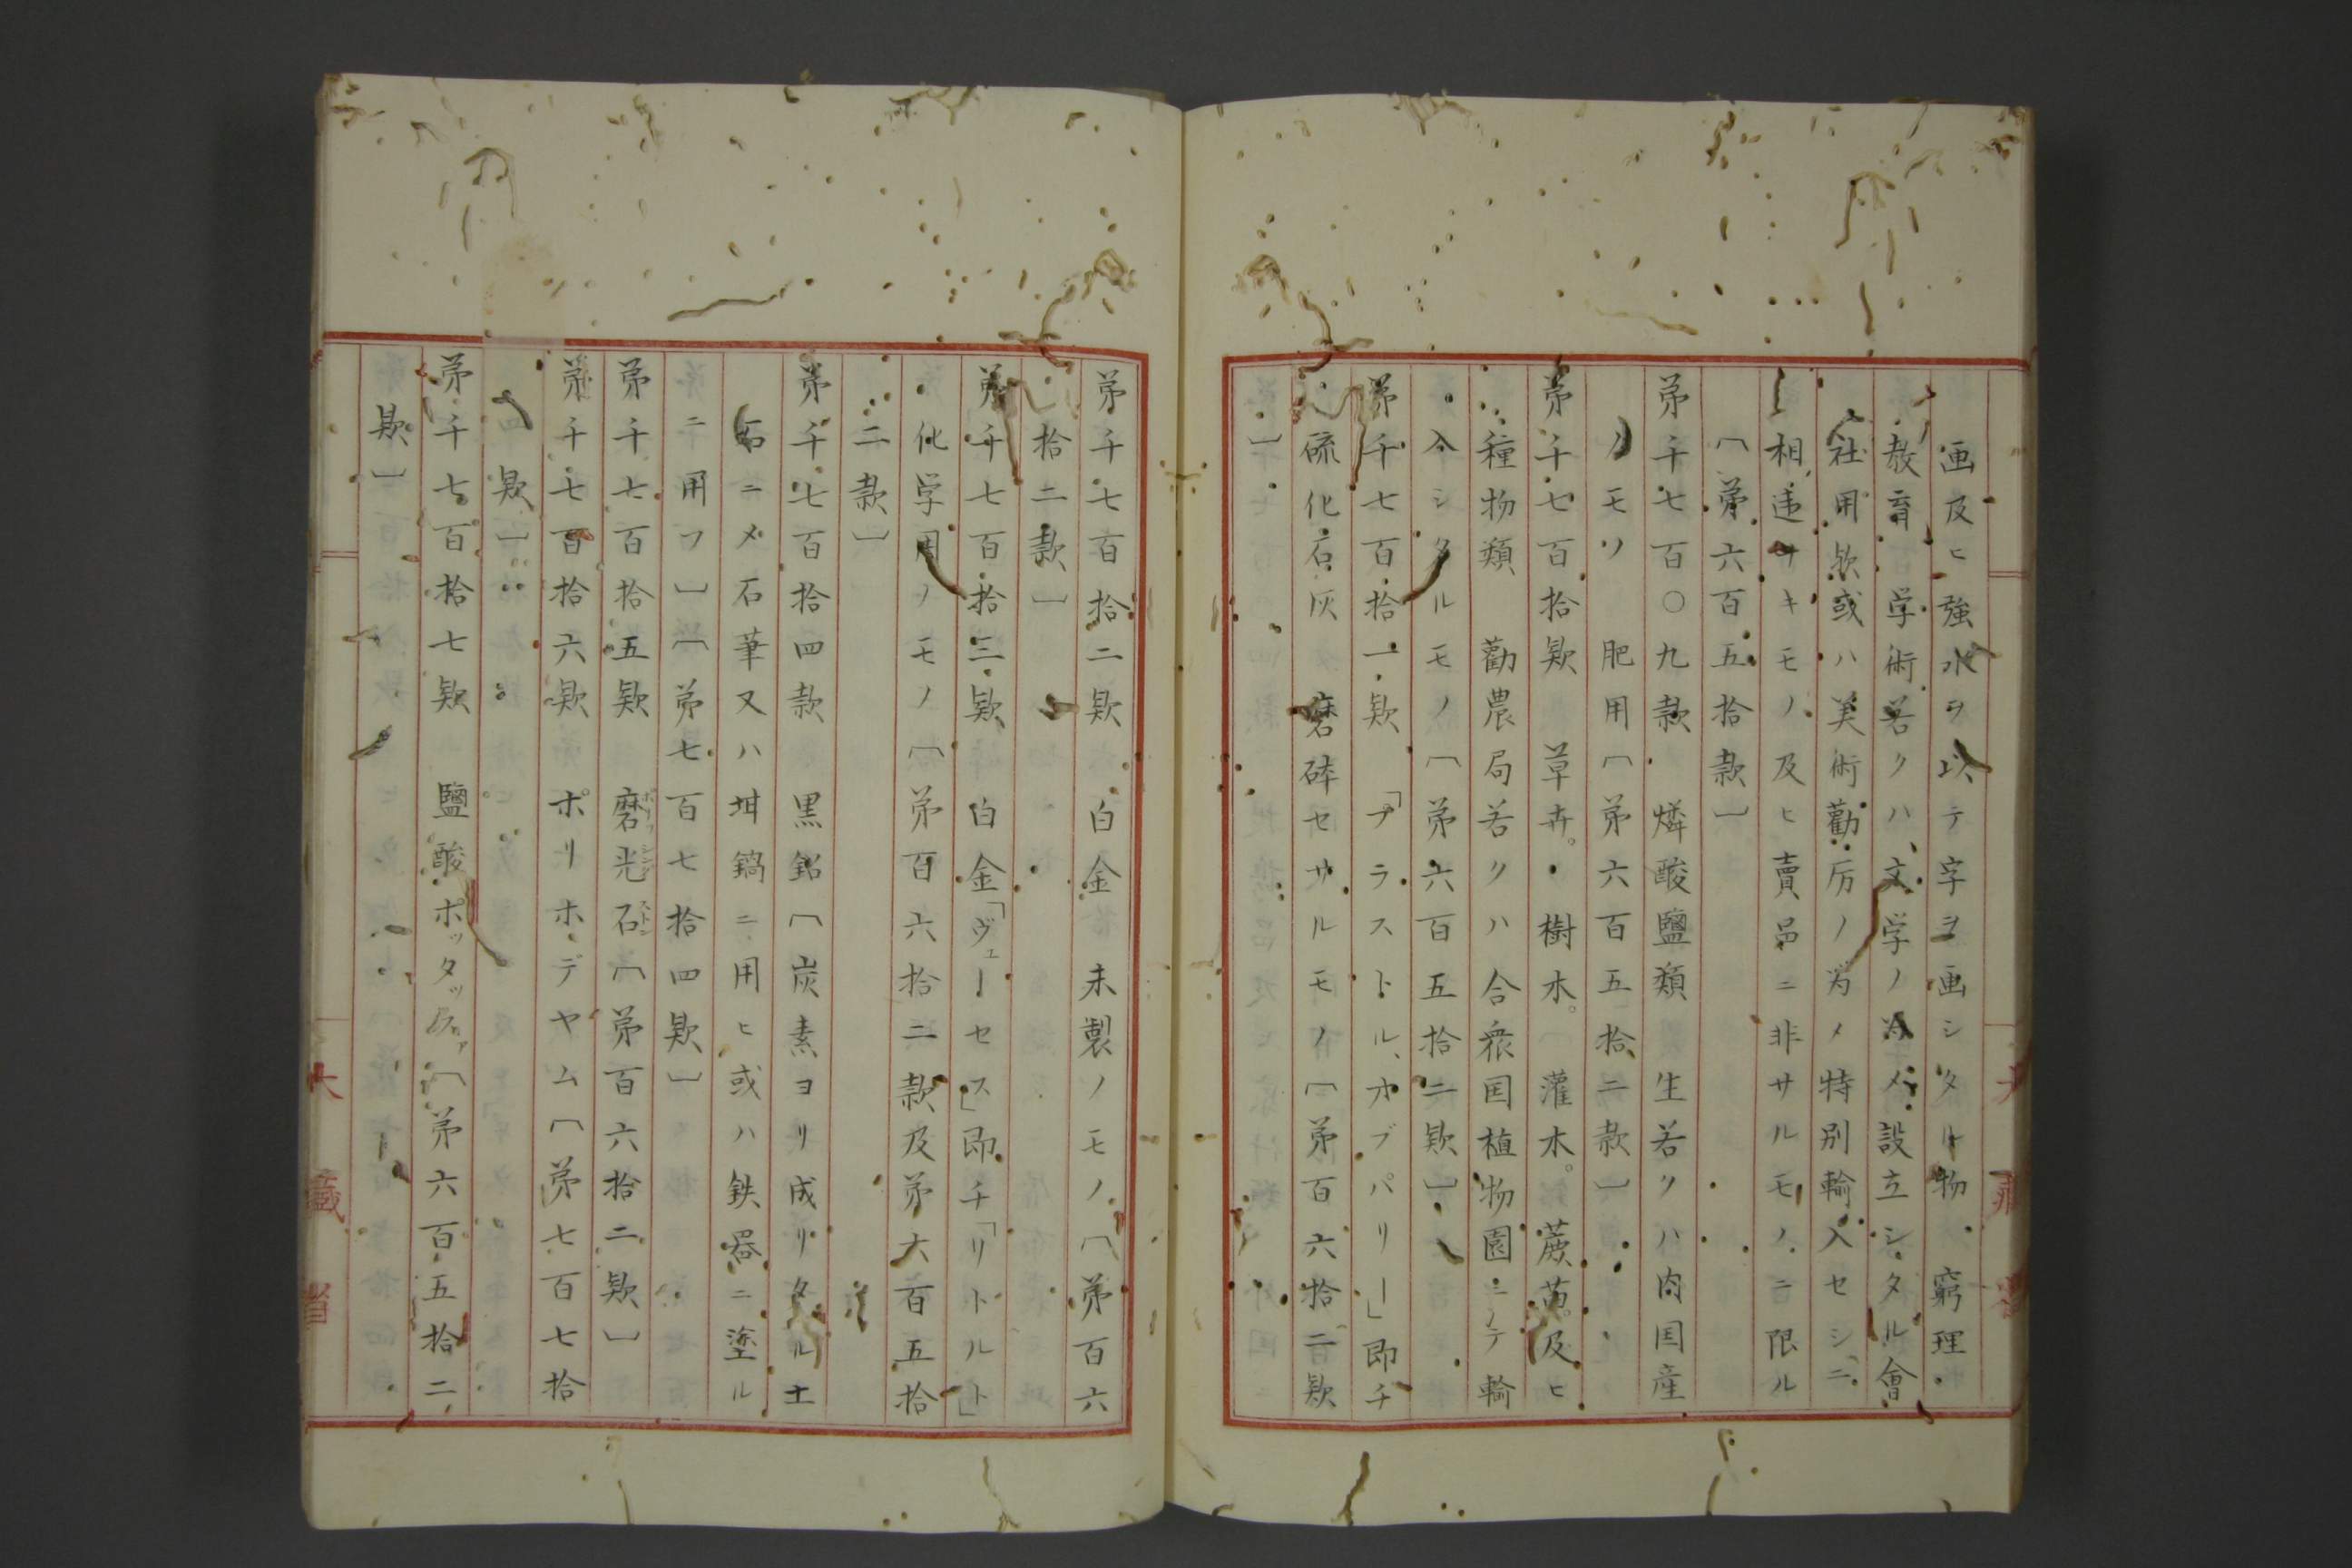 画及ヒ強水ヲ以テ字ヲ画シタル物窮理
教育学術若クハ文学ノ為メ設立シタル會
社用欵或ハ美術勸厉ノ為メ特別輸入セシニ
相违ナキモノ及ヒ賣品ニ非サルモノニ限ル
〔第六百五拾款〕
第千七百〇九款 燐酸鹽類 生若クハ肉国産
ノモノ 肥用〔第六百五拾二款〕
第千七百拾欵 草卉。樹木。灌木。蕨苗。及ヒ
種物類 勸農局若クハ合衆国植物園ニテ輸
入シタルモノ〔第六百五拾二欵〕
第千七百拾一欵 「プラストル、オブパリー」即チ
硫化石灰 磨碎セサルモノ〔第百六拾二欵
〕
第千七百拾二欵 白金 未製ノモノ〔第百六
拾二款〕
第千七百拾三欵 白金「ヴェーセス」即チ「リトルト」
化学用ノモノ〔第百六拾二款及第六百五拾
二款〕
第千七百拾四款 黒鉛〔炭素ヨリ成リタル土
石ニメ石筆又ハ坩鍋ニ用ヒ或ハ鉄器ニ塗ル
ニ用フ〕〔第七百七拾四欵〕
第千七百拾五欵 磨光石〔第百六拾二欵〕
第千七百拾六欵 ポリホデヤム〔第七百七拾
欵〕
第千七百拾七欵 鹽酸ポッタッ〔第六百五拾二
欵〕
大藏省